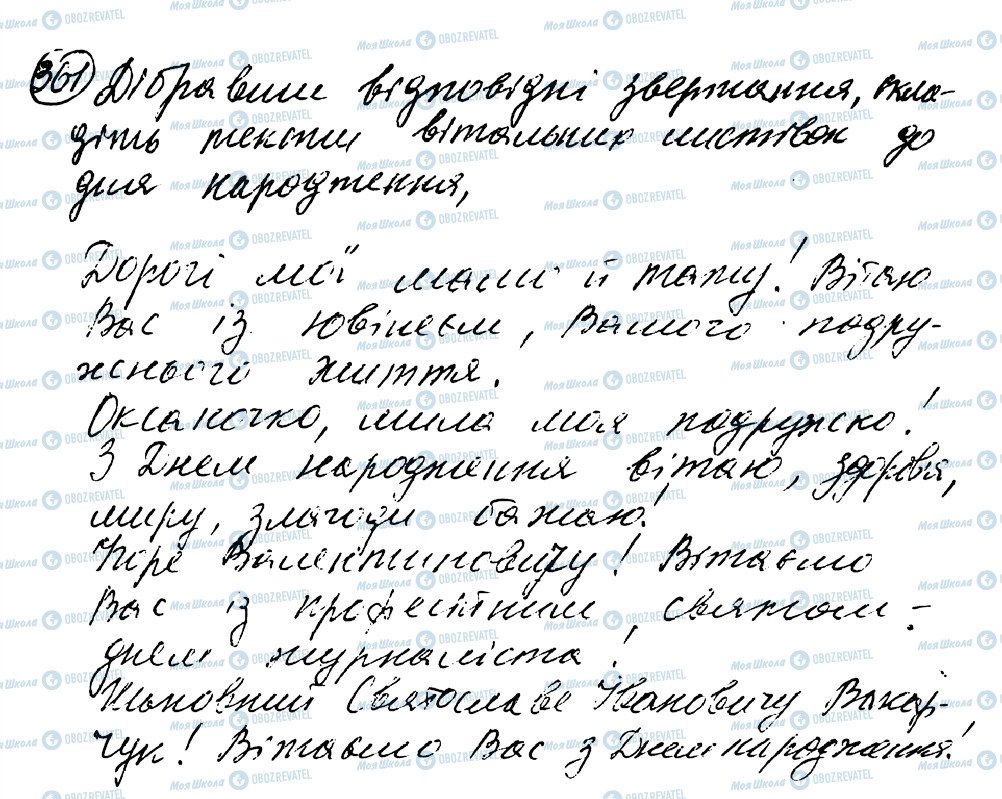 361 Дібравши відповідні звертання, скла-
діть тексти вітальних листівок до
дня народження,
Дорогі мої мамо й тату! Вітаю
Вас із ювілеєм, Вашого подру-
жнього життя.
Оксаночко, мила моя подружко!
З Днем народження вітаю, здоров'я,
миру, злагоди бажаю!
Юре Валентиновичу! Вітаємо
Вас із професійним святом -
днем журналіста!
Шановний Святославе Івановичу Вакар-
чук! Вітаємо Вас з Днем народження!